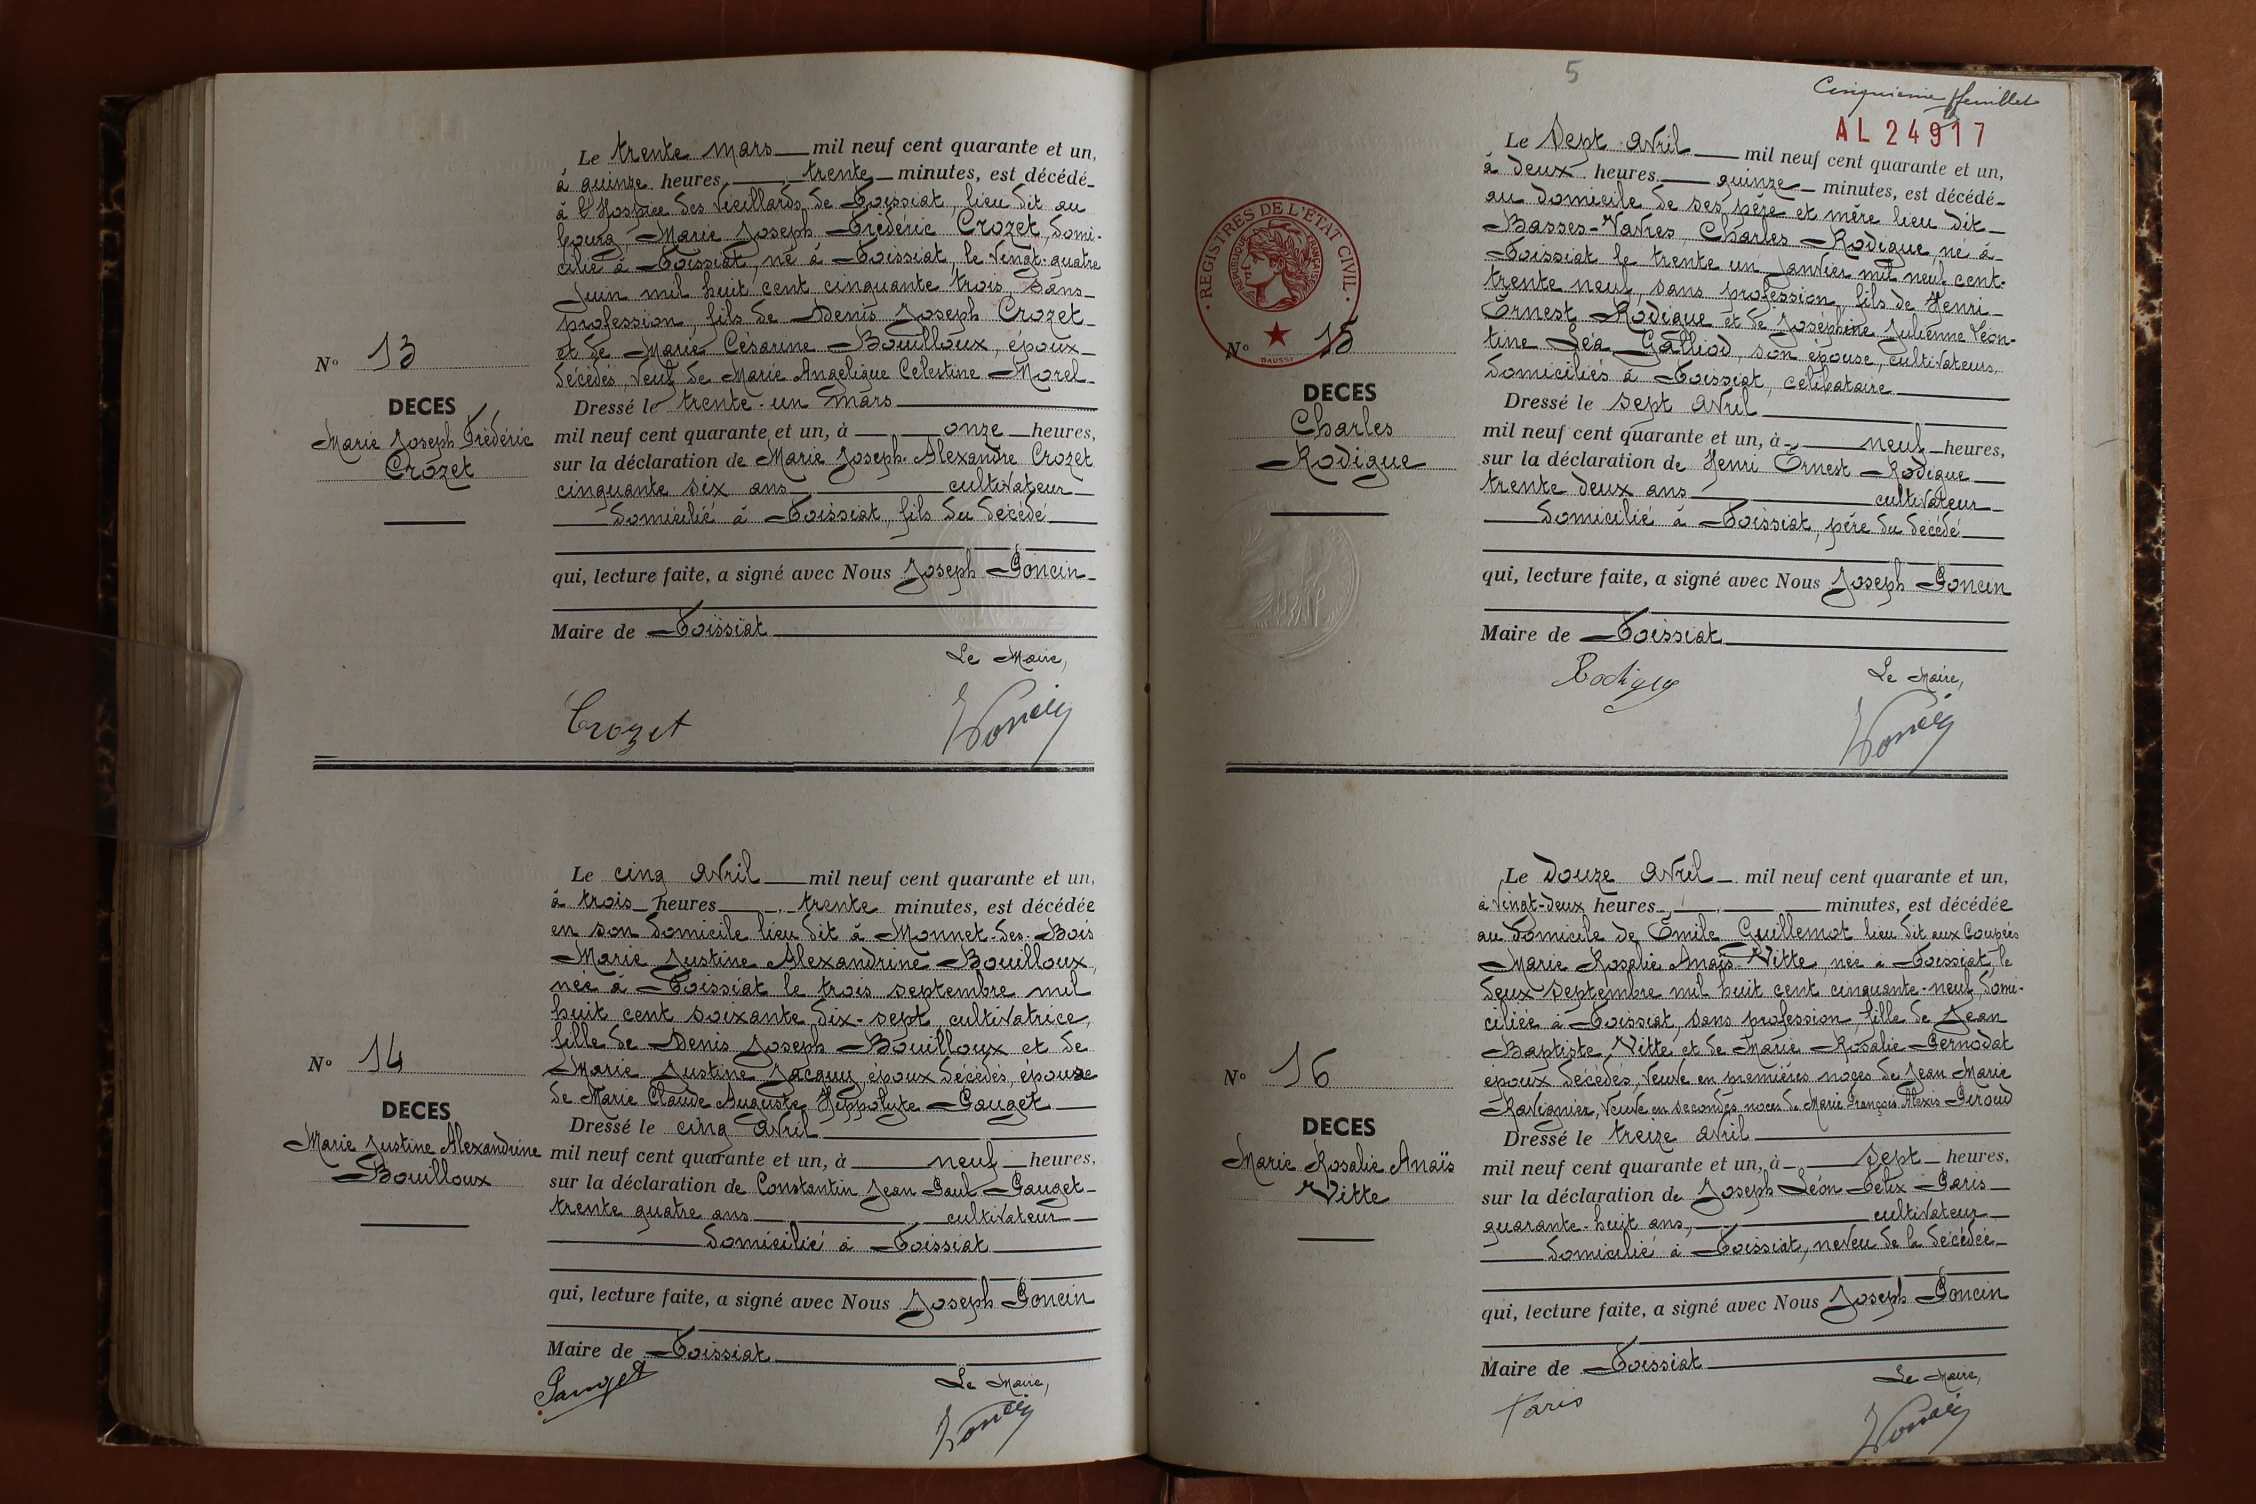 Le trente mars mil neuf cent quarante et un,
à quinze heures trente minutes, est décédé
à l'Hospice des Vieillards de Foissiat, lieu dit au
bourg, Marie Joseph Frédéric Crozet, domi-
cilié à Foissiat, né à Foissiat, le vingt-quatre
Juin mil huit cent cinquante trois, sans
profession, fils de Denis Joseph Crozet
et de Marie Césarine Bouilloux, époux
décédés, veuf de Marie Angelique Célestine Morel
N° 13
DECES
Marie Joseph Frédéric
Crozet
Dressé le trente-un mars
mil neuf cent quarante et un, à onze heures,
sur la déclaration de Marie Joseph Alexandre Crozet
cinquante six ans cultivateur
domicilié à Foissiat, fils du décédé
qui, lecture faite, a signé avec Nous Joseph Poncin
Maire de Foissiat
Le Maire,
Crozet
Poncin
Le cinq avril mil neuf cent quarante et un,
à trois heures trente minutes, est décédée
en son domicile lieu dit à Monnet-des-Bois
Marie Justine Alexandrine Bouilloux,
née à Foissiat le trois septembre mil
huit cent soixante dix-sept, cultivatrice,
fille de Denis Joseph Bouilloux et de
Marie Justine Jacquy, époux décédés, épouse
de Marie Claude Auguste Hippolyte Pauget
N° 14
DECES
Marie Justine Alexandrine
Bouilloux
Dressé le cinq avril
mil neuf cent quarante et un, à neuf heures,
sur la déclaration de Constantin Jean Paul Pauget
trente quatre ans cultivateur
domicilié à Foissiat
qui, lecture faite, a signé avec Nous Joseph Poncin
Maire de Foissiat
Le Maire,
Pauget
Poncin
5
Cinquième feuillet
AL 24917
Le sept avril mil neuf cent quarante et un,
à deux heures quinze minutes, est décédé
au domicile de ses père et mère lieu dit
Basses-Vavres, Charles Rodigue, né à
Foissiat le trente un janvier mil neuf cent
trente neuf, sans profession, fils de Henri
Ernest Rodigue et de Joséphine Julienne Léon-
tine Léa Galliod, son épouse, cultivateurs,
domiciliés à Foissiat, célibataire
REGISTRES DE L'ÉTAT CIVIL
RÉPUBLIQUE FRANÇAISE
DAUSSY
N° 15
DECES
Charles
Rodigue
Dressé le sept avril
mil neuf cent quarante et un, à neuf heures,
sur la déclaration de Henri Ernest Rodigue
trente deux ans cultivateur
domicilié à Foissiat, père du décédé
qui, lecture faite, a signé avec Nous Joseph Poncin
Maire de Foissiat
Le Maire,
Rodigue
Poncin
Le douze avril mil neuf cent quarante et un,
à vingt-deux heures minutes, est décédée
au domicile de Emile Guillemot lieu dit aux Coupées
Marie Rosalie Anaïs Vitte, née à Foissiat, le
deux septembre mil huit cent cinquante-neuf, domi-
ciliée à Foissiat, sans profession, fille de Jean
Baptiste Vitte et de Marie Rosalie Pernodat
époux décédés, veuve en premières noces de Jean Marie
Ravignier, veuve en secondes noces de Marie François Alexis Giroud
N° 16
DECES
Marie Rosalie Anaïs
Vitte
Dressé le treize avril
mil neuf cent quarante et un, à sept heures,
sur la déclaration de Joseph Léon Felix Paris
quarante-huit ans, cultivateur
domicilié à Foissiat, neveu de la décédée
qui, lecture faite, a signé avec Nous Joseph Poncin
Maire de Foissiat
Le Maire,
Paris
Poncin